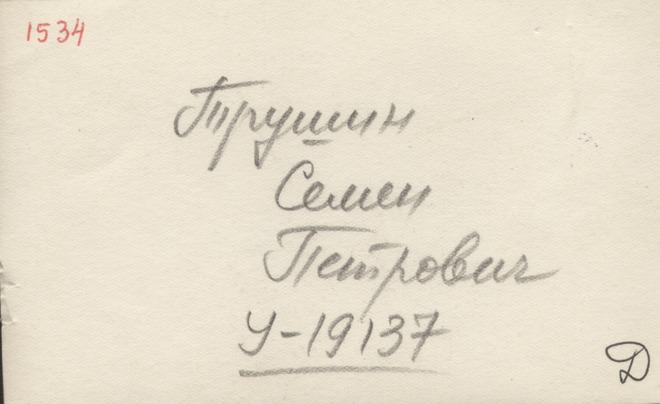 1534
Трушин
Семен
Петрович
У-19137
Д